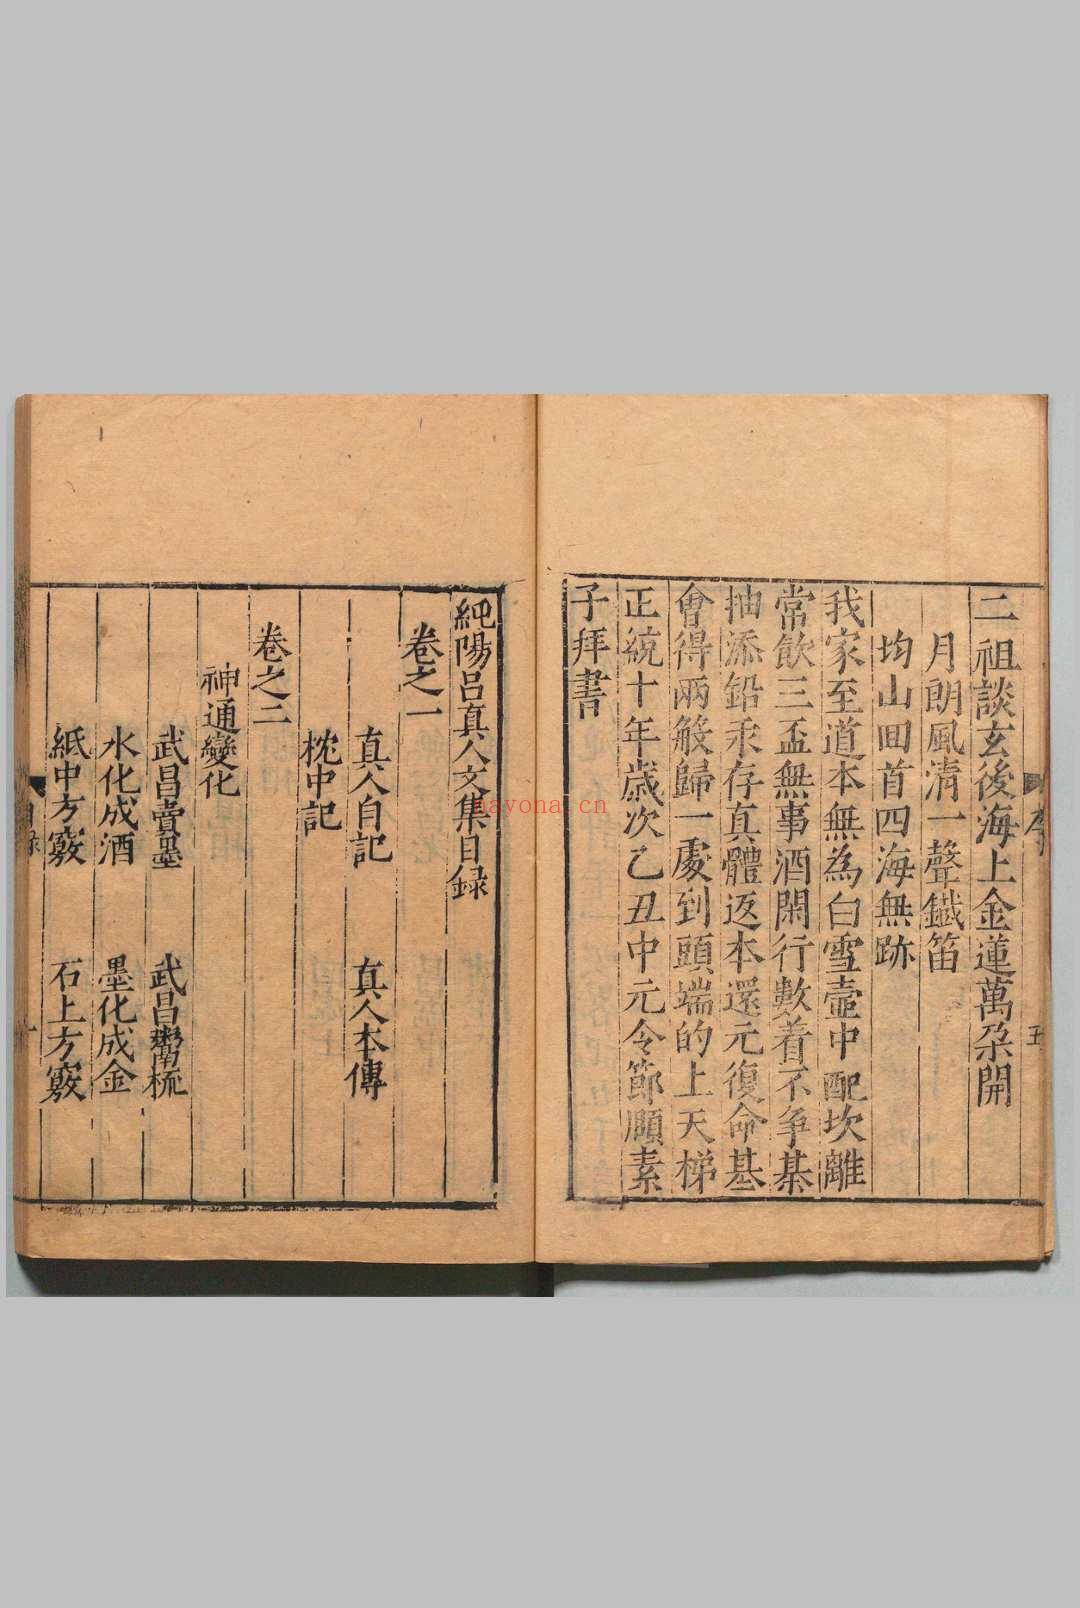 二祖談玄後海上金蓮萬朶開
月朗風清一聲鐵笛
均山回首四海無跡
我家至道本無為白雪壺中配坎離
常飲三盃無事酒閑行數着不爭棊
抽添鉛汞存真體返本還元復命基
會得兩般歸一處到頭端的上天梯
正統十年歲次乙丑中元令節願素
子拜書
序
五
純陽呂真人文集目録
卷之一
真人自記 真人本傳
枕中記
卷之二
神通變化
武昌賣墨 武昌鬻梳
水化成酒 墨化成金
紙中方竅 石上方竅
目録
nayona.cn